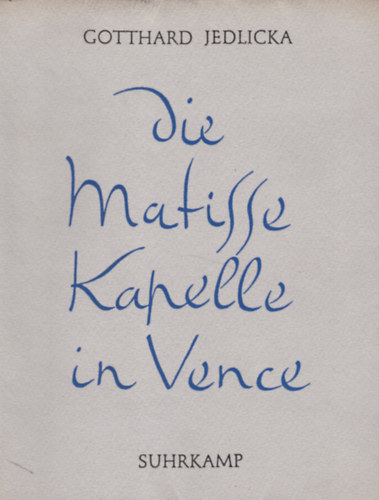 GOTTHARD JEDLICKA
Die
Matisse
Kapelle
in Vence
SUHRKAMP